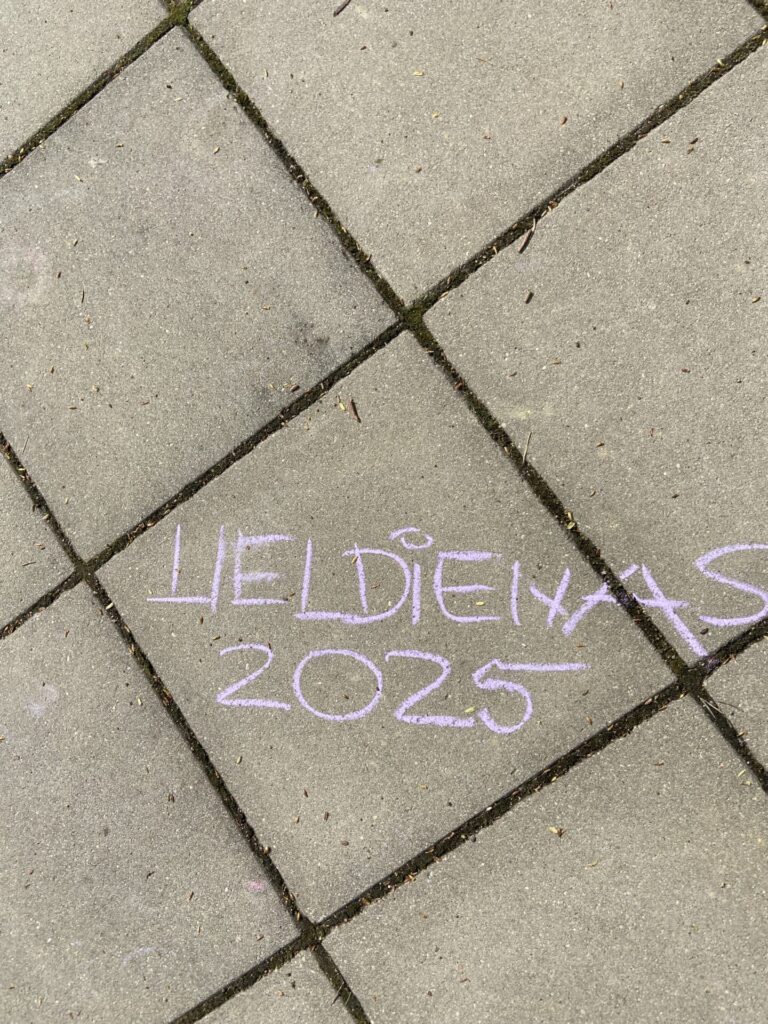 LIELDiENAS
2025